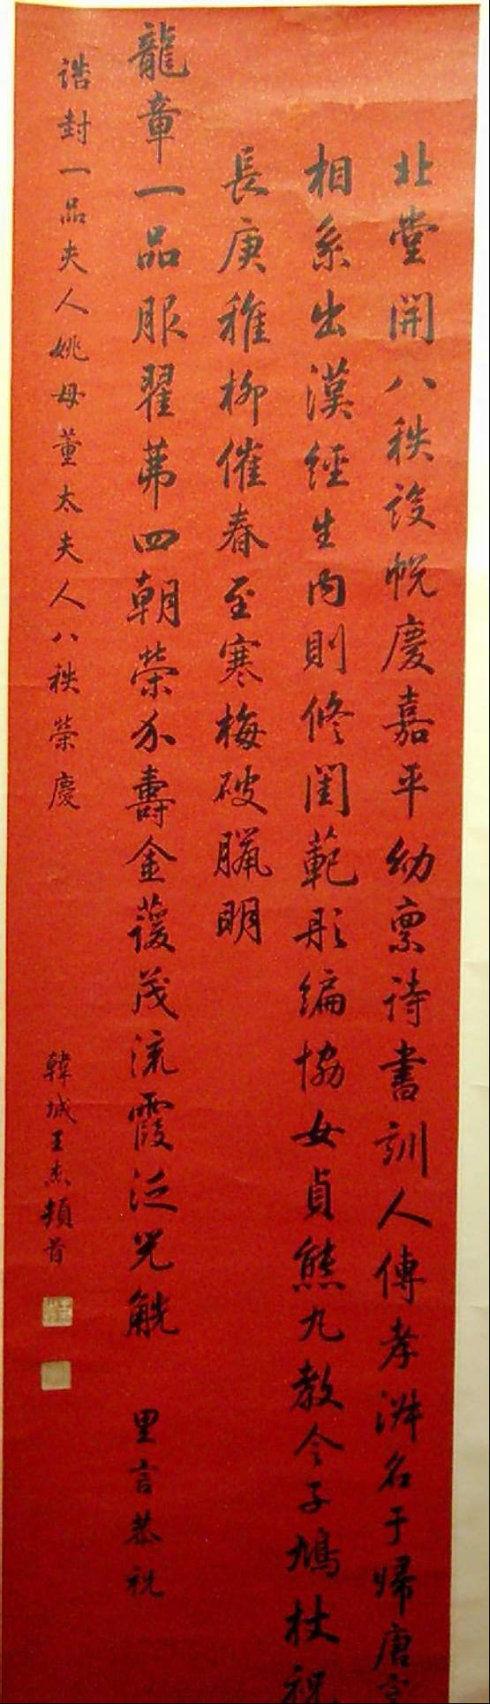 北堂開八秩設帨慶嘉平幼稟詩書訓人傳孝淑名于歸唐宰
相系出漢經生內則修閨範彤編協女貞熊丸教令子鳩杖祝
長庚稚柳催春至寒梅破臘明
龍章一品服翟茀四朝榮介壽金萱茂流霞泛兕觥 里言恭祝
誥封一品夫人姚母董太夫人八秩榮慶
韓城王杰頓首